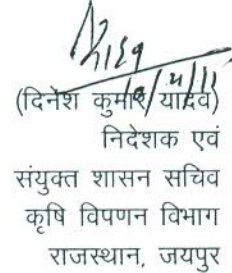 (दिनेश कुमार यादव)
निदेशक एवं
संयुक्त शासन सचिव
कृषि विपणन विभाग
राजस्थान, जयपुर